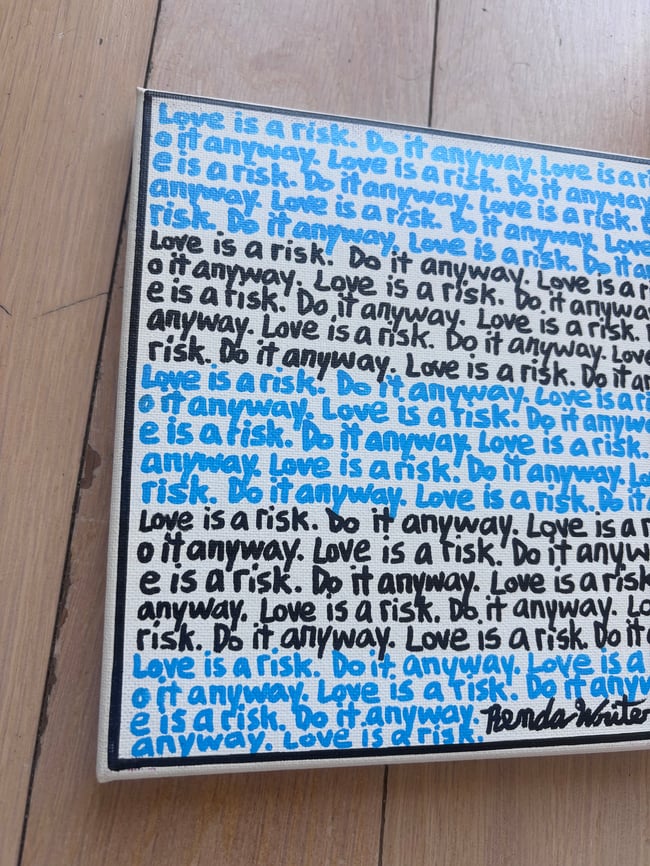 Love is a risk. Do it anyway. Love is a ri
o it anyway. Love is a risk. Do it anyway
e is a risk. Do it anyway. Love is a risk. D
anyway. Love is a risk. Do it anyway. Love
risk. Do it anyway. Love is a risk. Do it a
Love is a risk. Do it anyway. Love is a r
o it anyway. Love is a risk. Do it anywa
e is a risk. Do it anyway. Love is a risk.
anyway. Love is a risk. Do it anyway. Love
risk. Do it anyway. Love is a risk. Do it an
Love is a risk. Do it anyway. Love is a ri
o it anyway. Love is a risk. Do it anyw
e is a risk. Do it anyway. Love is a risk.
anyway. Love is a risk. Do it anyway. Lo
risk. Do it anyway. Love is a risk. Do it
Love is a risk. Do it anyway. Love is a r
o it anyway. Love is a risk. Do it anyw
e is a risk. Do it anyway. Love is a risk
anyway. Love is a risk. Do it anyway. Lo
risk. Do it anyway. Love is a risk. Do it
Love is a risk. Do it anyway. Love is a
o it anyway. Love is a risk. Do it anyw
e is a risk. Do it anyway. Renda Writer
anyway. Love is a risk.